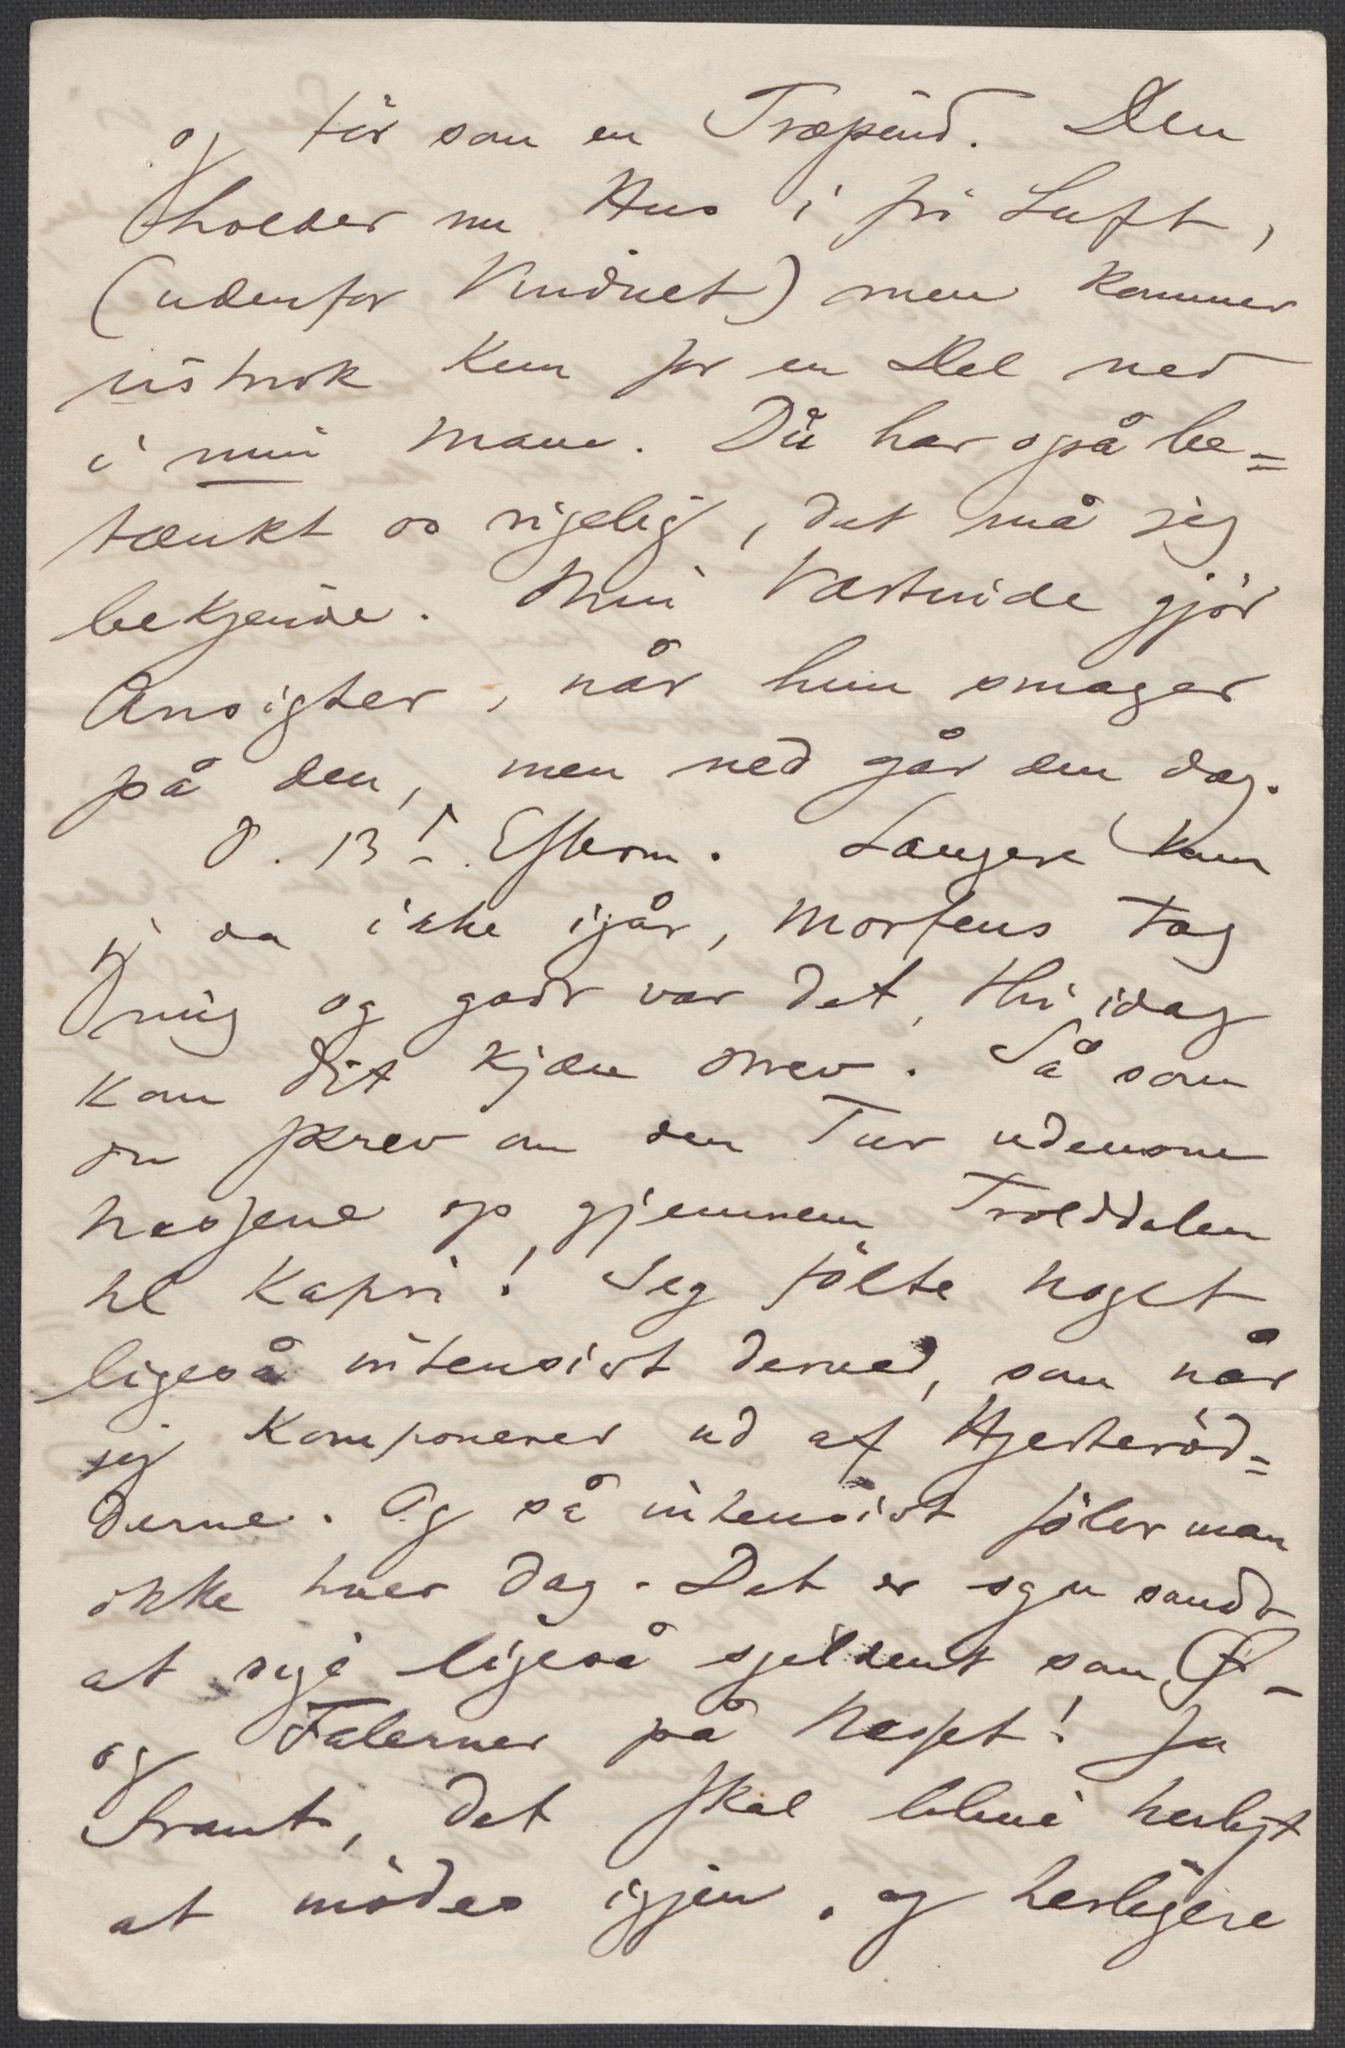 og tör som en Træpind. Den
holder nu Hus i fri Luft,
(udenfor Vinduet) men kommer
ustnok kun for en Del ned
i min Mave. Du har også be=
tænkt os rigelig, det må jeg
bekjende. Min Værtinde gjör
Ansigter, når hun smager
på den, men ned går den dog.
d. 13! Efterm. Længere kom
jeg da ikke igår, Morfeus tog
mig og godt var det, thi idag
kom dit kjære Brev. Så som
du skrev om den Tur udenom
Næssene op gjennem Trolddalen
til Kapri! Jeg fölte noget
ligeså intensivt derved, som når
jeg komponerer ud af Hjerteröd=
derne. Og så intensivt föler man
ikke hver Dag. Det er sgu sandt
at sige ligeså sjeldent som Øl-
og Falerner på Næsset! Ja
Frants, det skal blive herligt
at mödes igjen, og herligere